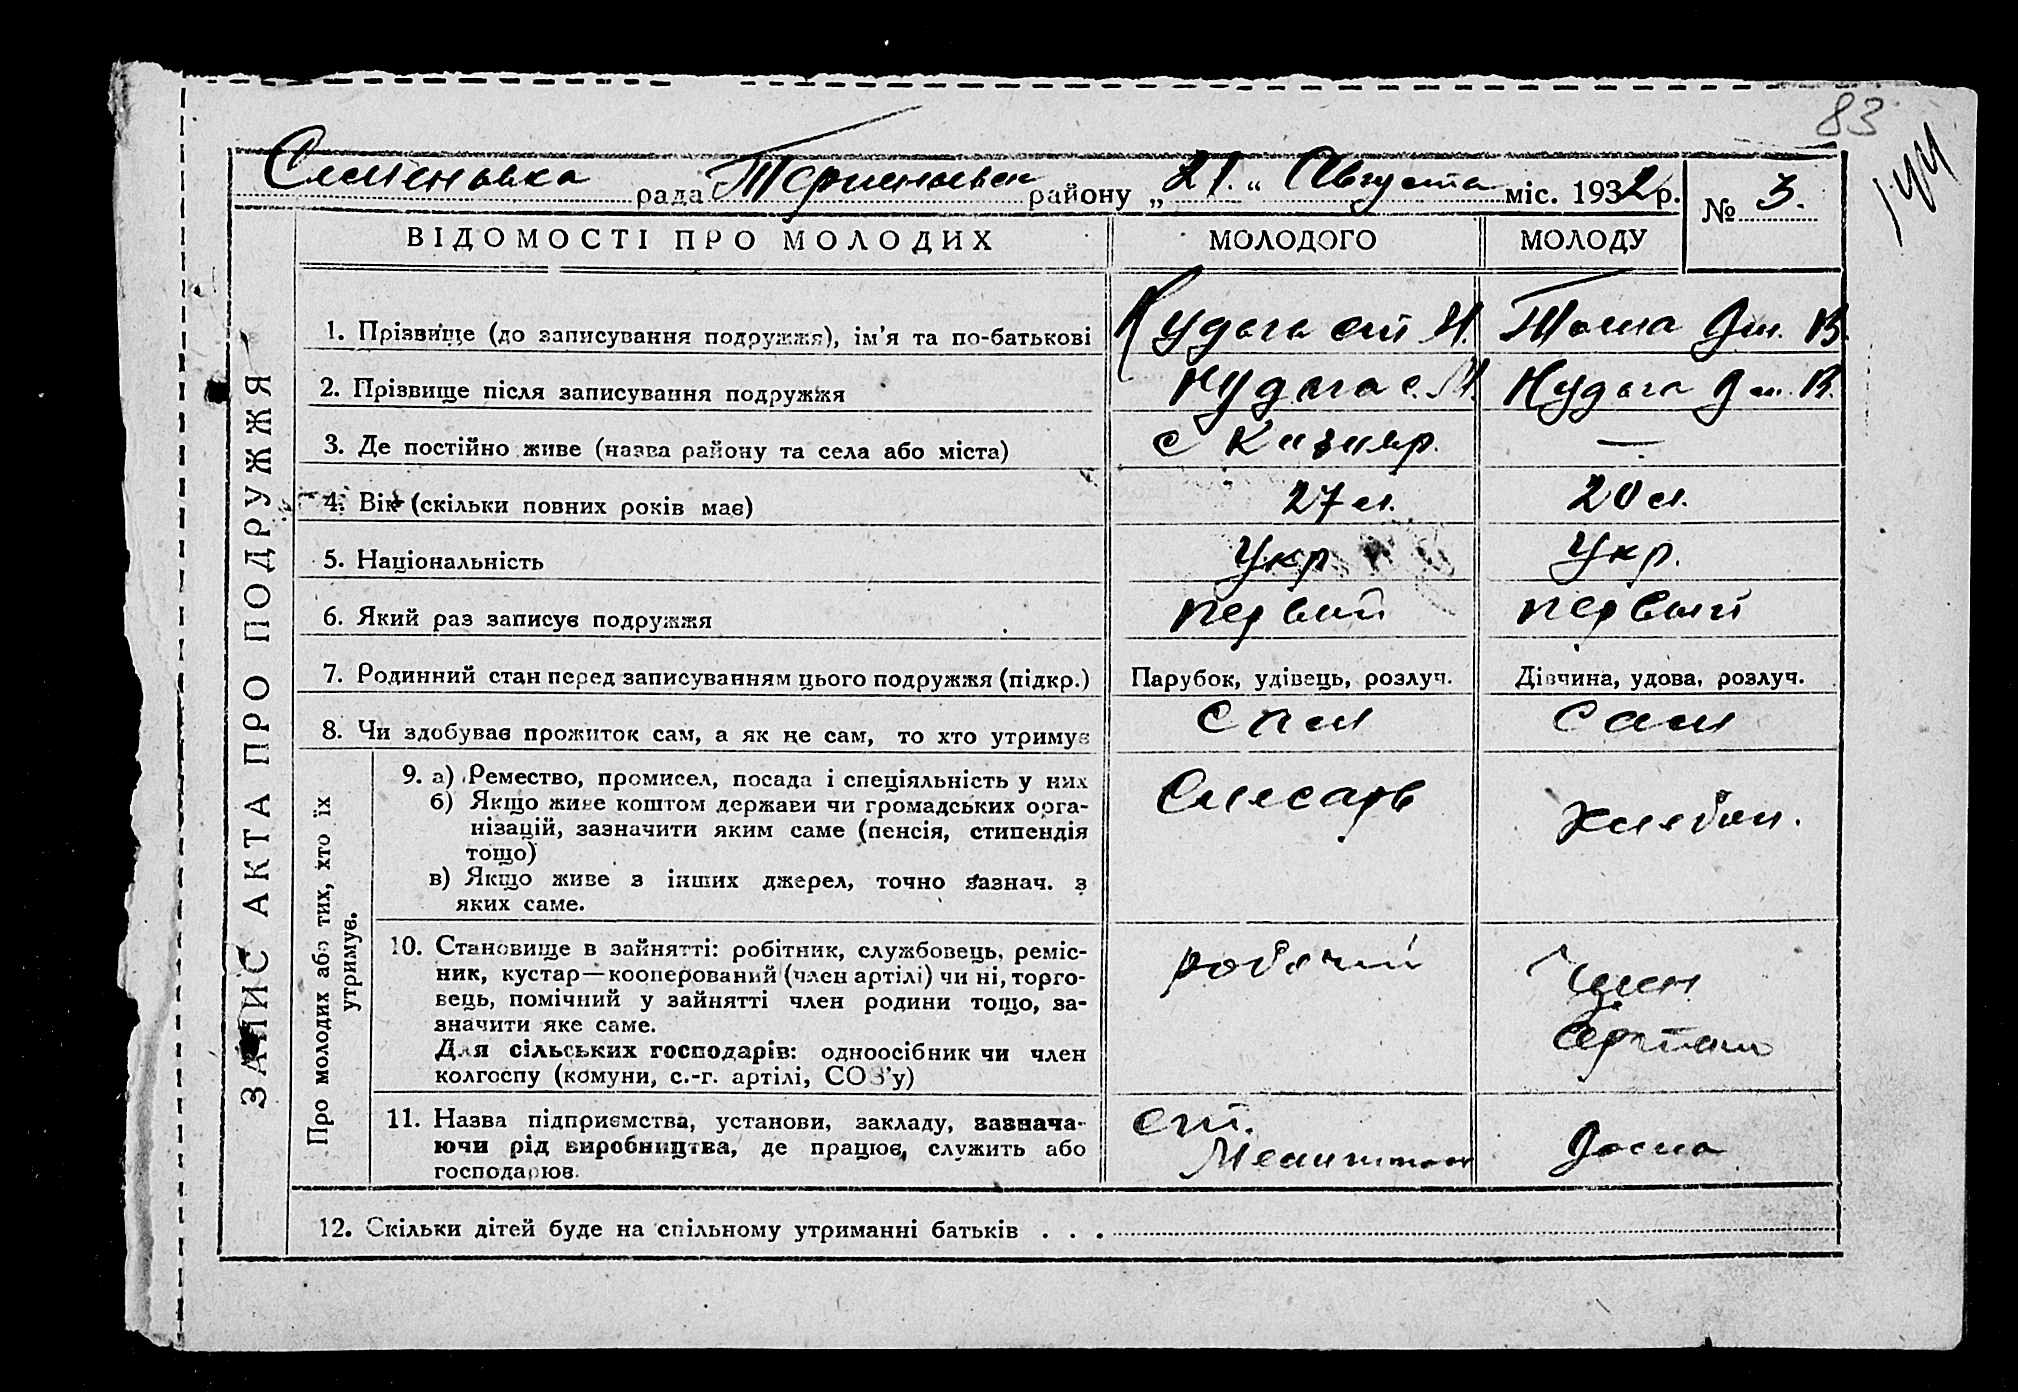 83
144
Семеновка рада Терновск району „21.“ Августа міс. 1932 р. № 3.
ВІДОМОСТІ ПРО МОЛОДИХ МОЛОДОГО МОЛОДУ
ЗАПИС АКТА ПРО ПОДРУЖЖЯ
1. Прізвище (до записування подружжя), ім’я та по-батькові
2. Прізвище після записування подружжя Нудьга
3. Де постійно живе (назва району та села або міста) с —
4. Вік (скільки повних років має) 27 л. 20 л.
5. Національність Укр Укр.
6. Який раз записує подружжя первый первый
7. Родинний стан перед записуванням цього подружжя (підкр.) Парубок, удівець, розлуч. Дівчина, удова, розлуч.
8. Чи здобував прожиток сам, а як не сам, то хто утримує сам сам
Про молодих або тих, хто їх
утримує.
9. а) Ремество, промисел, посада і спеціяльність у них Слесарь хлебоп.
б) Якщо живе коштом держави чи громадських орга-
нізацій, зазначити яким саме (пенсія, стипендія
тощо)
в) Якщо живе з інших джерел, точно зазнач. з
яких саме.
10. Становище в зайнятті: робітник, службовець, реміс- рабочий
ник, кустар—кооперований (член артілі) чи ні, торго- член
вець, помічний у зайнятті член родини тощо, за-
значити яке саме.
Для сільських господарів: одноосібник чи член
колгоспу (комуни, с.-г. артілі, СОЗ’у)
11. Назва підприємства, установи, закладу, зазнача- ст.
ючи рід виробництва, де працює, служить або
господарює.
12. Скільки дітей буде на спільному утриманні батьків . . .